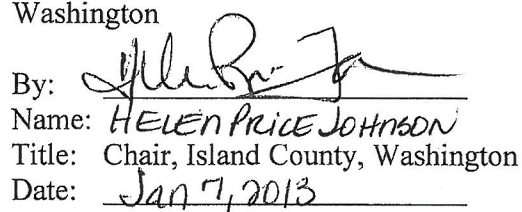 Washington
By:
Name: HELEN PRICE JOHNSON
Title: Chair, Island County, Washington
Date: Jan 7, 2013